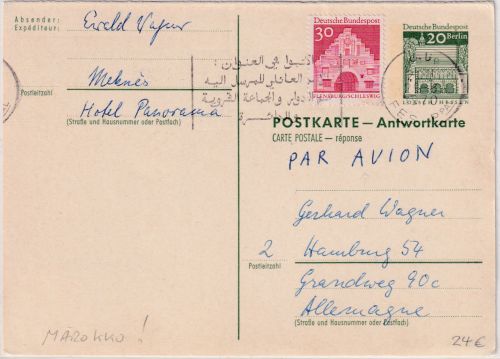 Absender:
Expéditeur:
Ewald Wagner
Meknès
Postleitzahl
Hotel Panorama
(Straße und Hausnummer oder Postfach)
لاتنسوا في العنوان:
العائلي للمرسل إليه
الدوار و الجماعة القروية
30
Deutsche Bundespost
FLENSBURG/SCHLESWIG
Deutsche Bundespost
20 Berlin
LORSCH/HESSEN
POSTKARTE – Antwortkarte
CARTE POSTALE – réponse
PAR AVION
Gerhard Wagner
2 Hamburg 54
Postleitzahl
Grandweg 90c
Allemagne
(Straße und Hausnummer oder Postfach)
MAROKKO!
24€